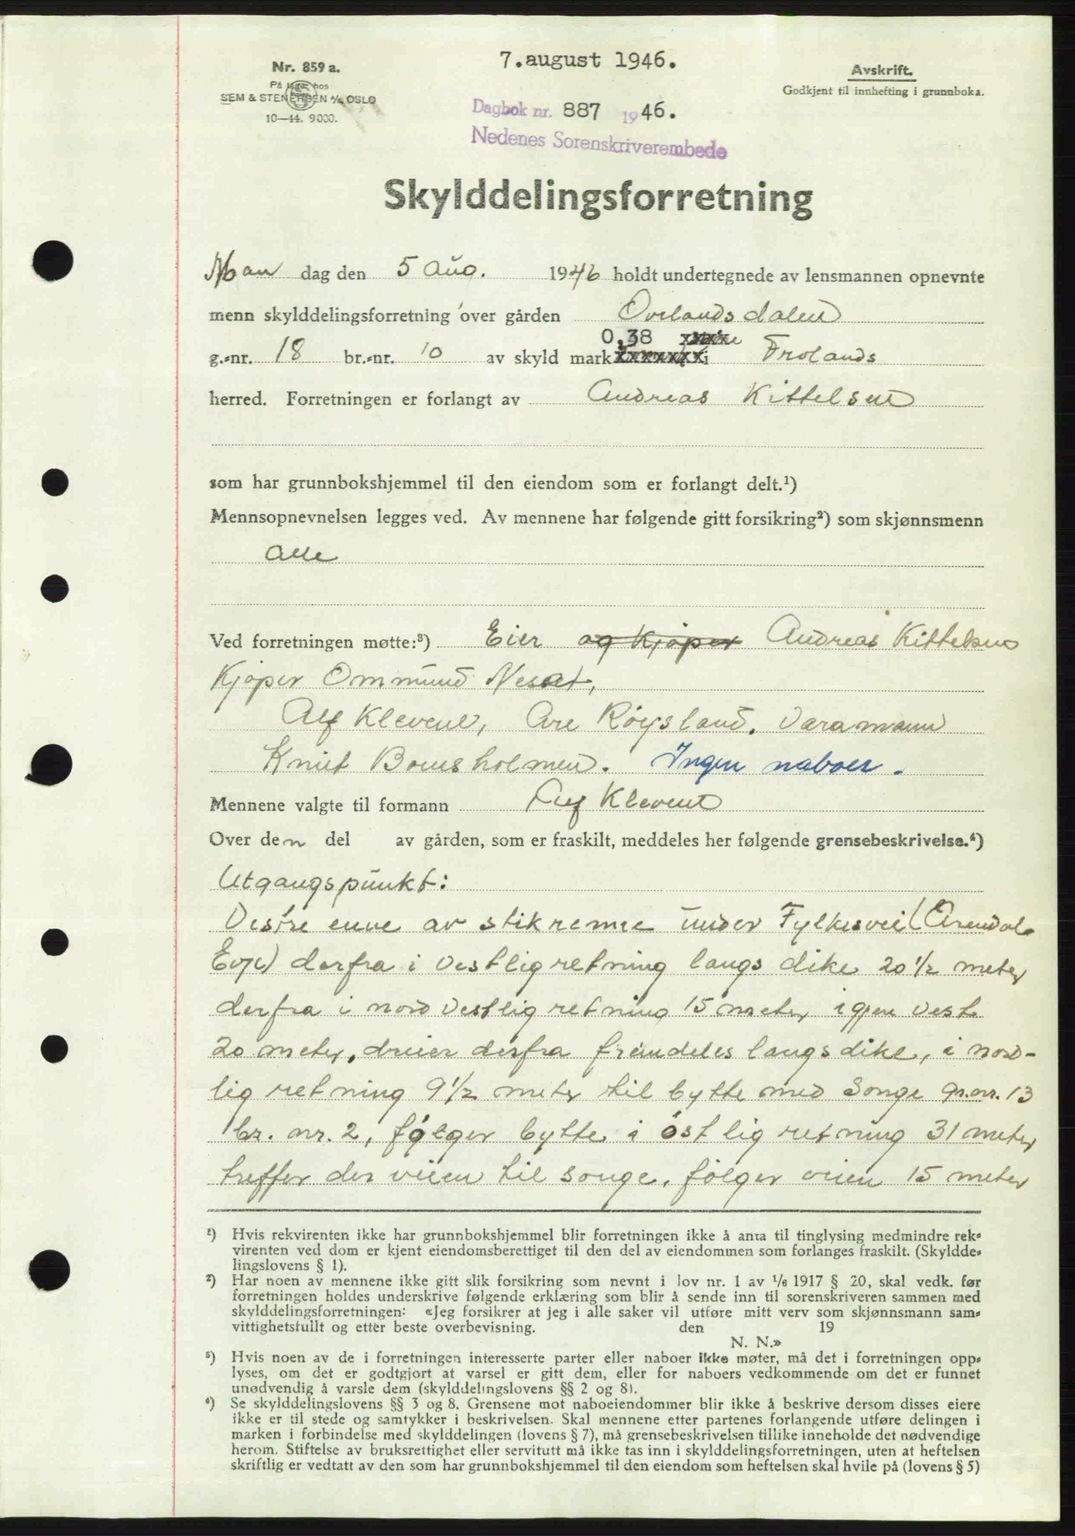 Nr. 859 a.
På lager hos
SEM & STENERSEN A/S OSLO
10-44. 9000.
7. august 1946.
Dagbok nr. 887 1946.
Nedenes Sorenskriverembede
Avskrift.
Godkjent til innhefting i grunnboka.
Skylddelingsforretning
Man dag den 5 Aug. 1946 holdt undertegnede av lensmannen opnevnte
menn skylddelingsforretning over gården Ovelandsdalen
0,38
g.-nr. 18 br.-nr. 10 av skyld mark i Frolands
herred. Forretningen er forlangt av Andreas Kittelsen
som har grunnbokshjemmel til den eiendom som er forlangt delt.¹)
Mennsopnevnelsen legges ved. Av mennene har følgende gitt forsikring²) som skjønnsmenn
Alle
Ved forretningen møtte:³) Eier og Kjøper Andreas Kittelsen
Kjøper Ommund Nesæt,
Alf Klevene, Are Røysland. Varamann
Knut Bomsholmen. Ingen naboer.
Mennene valgte til formann Alf Klevene
Over den del av gården, som er fraskilt, meddeles her følgende grensebeskrivelse.⁴)
Utgangspunkt:
Vestre enne av stikrenne under Fylkesvei (Arendal-
Evje) derfra i vestlig retning langs dike 20 1/2 meter
derfra i nord vestlig retning 15 meter igjen vest
20 meter, dreier derfra fremdeles langs dike, i nord-
lig retning 9 1/2 meter til bytte med Songe gr.nr. 13
br. nr. 2, følger bytte i østlig retning 31 meter
treffer der veien til Songe, følger veien 15 meter
¹) Hvis rekvirenten ikke har grunnbokshjemmel blir forretningen ikke å anta til tinglysing medmindre rek-
virenten ved dom er kjent eiendomsberettiget til den del av eiendommen som forlanges fraskilt. (Skyldde-
lingslovens § 1).
²) Har noen av mennene ikke gitt slik forsikring som nevnt i lov nr. 1 av 1/6 1917 § 20, skal vedk. før
forretningen holdes underskrive følgende erklæring som blir å sende inn til sorenskriveren sammen med
skylddelingsforretningen: «Jeg forsikrer at jeg i alle saker vil utføre mitt verv som skjønnsmann sam-
vittighetsfullt og etter beste overbevisning. den 19
N. N.»
³) Hvis noen av de i forretningen interesserte parter eller naboer ikke møter, må det i forretningen opp-
lyses, om det er godtgjort at varsel er gitt dem, eller for naboers vedkommende om det er funnet
unødvendig å varsle dem (skylddelingslovens §§ 2 og 8).
⁴) Se skylddelingslovens §§ 3 og 8. Grensene mot naboeiendommer blir ikke å beskrive dersom disses eiere
ikke er til stede og samtykker i beskrivelsen. Skal mennene etter partenes forlangende utføre delingen i
marken i forbindelse med skylddelingen (lovens § 7), må grensebeskrivelsen tillike inneholde det nødvendige
herom. Stiftelse av bruksrettighet eller servitutt må ikke tas inn i skylddelingsforretningen, uten at heftelsen
skriftlig er vedtatt av den som har grunnbokshjemmel til den eiendom som heftelsen skal hvile på (lovens § 5)